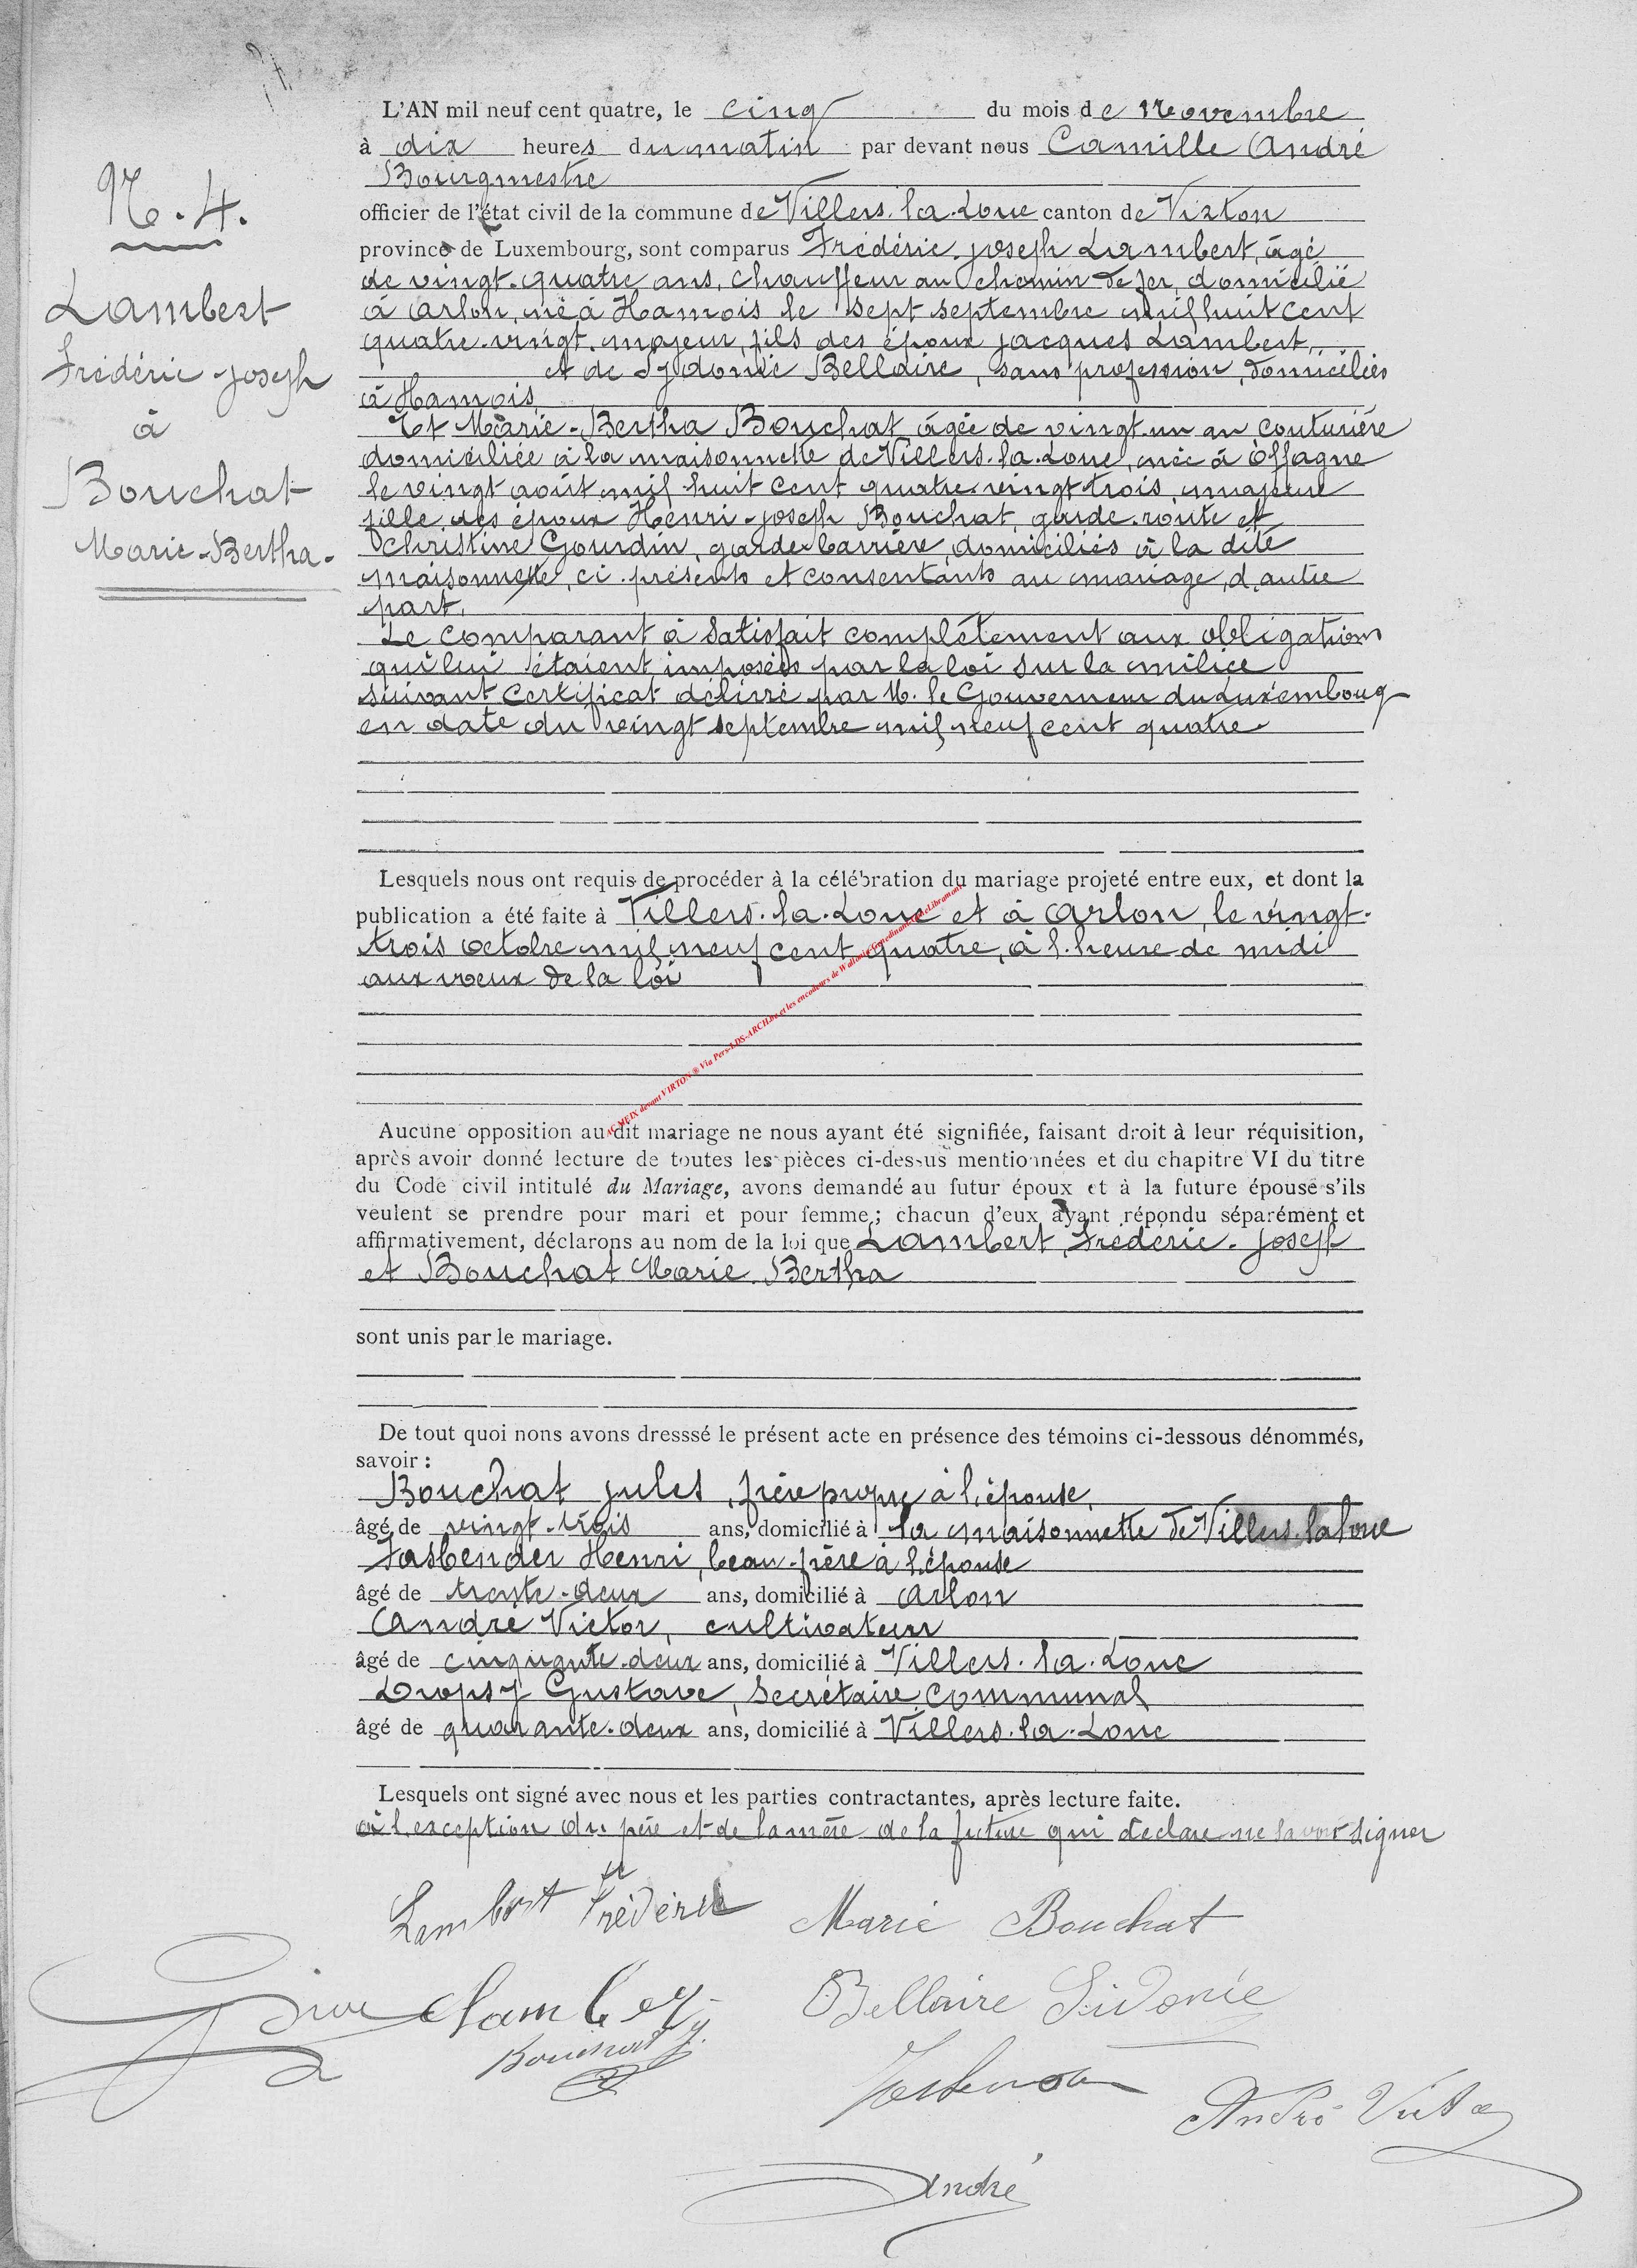 N. 4.
Lambert
Frédéric-Joseph
à
Bouchat
Marie-Bertha.
L'AN mil neuf cent quatre, le cinq du mois de Novembre
à dix heures du matin par devant nous Camille André
Bourgmestre
officier de l'état civil de la commune de Villers-la-Loue canton de Virton
province de Luxembourg, sont comparus Frédéric-Joseph Lambert, âgé
de vingt-quatre ans, chauffeur au chemin de fer, domicilié
à Arlon, né à Hamois le sept septembre mil huit cent
quatre-vingt, majeur, fils des époux Jacques Lambert,
et de Sydonie Bellaire, sans profession, domiciliés
à Hamois
Et Marie-Bertha Bouchat âgée de vingt-un an couturière
domiciliée à la maisonnette de Villers-la-Loue, née à Offagne
le vingt août mil huit cent quatre-vingt trois, majeure
fille des époux Henri-Joseph Bouchat, garde-route et
Christine Gourdin, garde-barrière, domiciliés à la dite
maisonnette, ci-présents et consentants au mariage, d'autre
part.
Le comparant à satisfait complètement aux obligations
qui lui étaient imposées par la loi sur la milice
suivant certificat délivré par M. le Gouverneur du Luxemboug
en date du vingt septembre mil neuf cent quatre
Lesquels nous ont requis de procéder à la célébration du mariage projeté entre eux, et dont la
publication a été faite à Villers-la-Loue et à Arlon, le vingt-
trois octobre mil neuf cent quatre, à l'heure de midi
aux voeux de la loi
AC MEIX devant VIRTON ® Via Pers-LDS-ARCH.be et les encodeurs de Wallonie
Aucune opposition au dit mariage ne nous ayant été signifiée, faisant droit à leur réquisition,
après avoir donné lecture de toutes les pièces ci-dessus mentionnées et du chapitre VI du titre
du Code civil intitulé du Mariage, avons demandé au futur époux et à la future épouse s'ils
veulent se prendre pour mari et pour femme ; chacun d'eux ayant répondu séparément et
affirmativement, déclarons au nom de la loi que Lambert Frédéric-Joseph
et Bouchat Marie-Bertha
sont unis par le mariage.
De tout quoi nons avons dresssé le présent acte en présence des témoins ci-dessous dénommés,
savoir :
Bouchat Jules, frère propre à l'épouse,
âgé de vingt-trois ans, domicilié à la maisonnette de Villers-la-Loue
Fasbender Henri, beau-frère à l'épouse
âgé de trente-deux ans, domicilié à Arlon
André Victor, cultivateur
âgé de cinquante-deux ans, domicilié à Villers-la-Loue
Dropsy Gustave, secrétaire communal
âgé de quarante-deux ans, domicilié à Villers-la-Loue
Lesquels ont signé avec nous et les parties contractantes, après lecture faite.
à l'exception du père et de la mère de la future qui déclare ne savoir signer
Lambert Frédéric Marie Bouchat
Bellaire Sidonie
Bouchat J.
André Victor
André